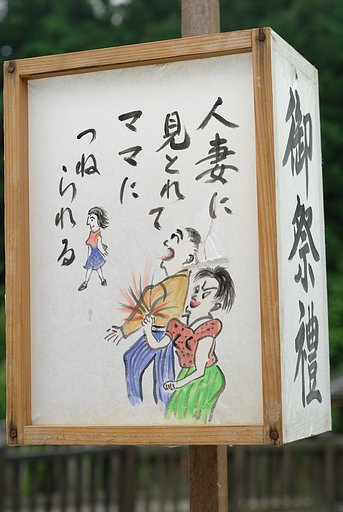 人妻に
見とれて
ママに
つねられる
御祭禮